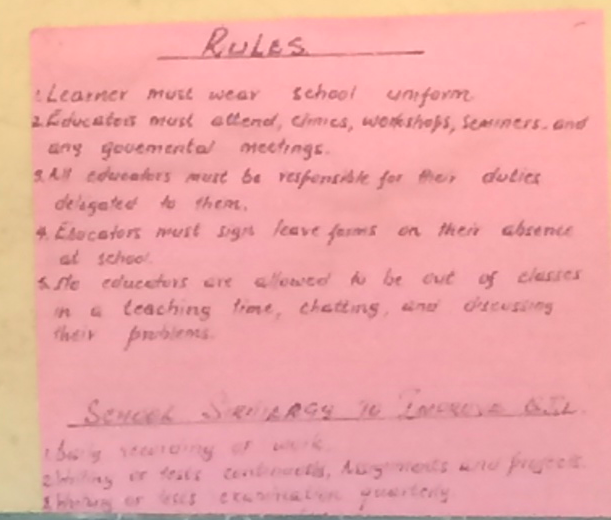 RULES
1. Learner must wear school uniform
2. Educators must attend, clinics, workshops, seminers. and
any govemental meetings.
3. All educators must be responsible for their duties
delegated to them.
4. Educators must sign leave forms on their absence
at school.
5. No educators are allowed to be out of classes
in a teaching time, chatting, and discussing
their problems.
SCHOOL STRATERGY TO IMPROVE
1. Daily recording of work.
2. Writing of tests continuosly, Assignments and projects.
3. Writing of tests examination quarterly